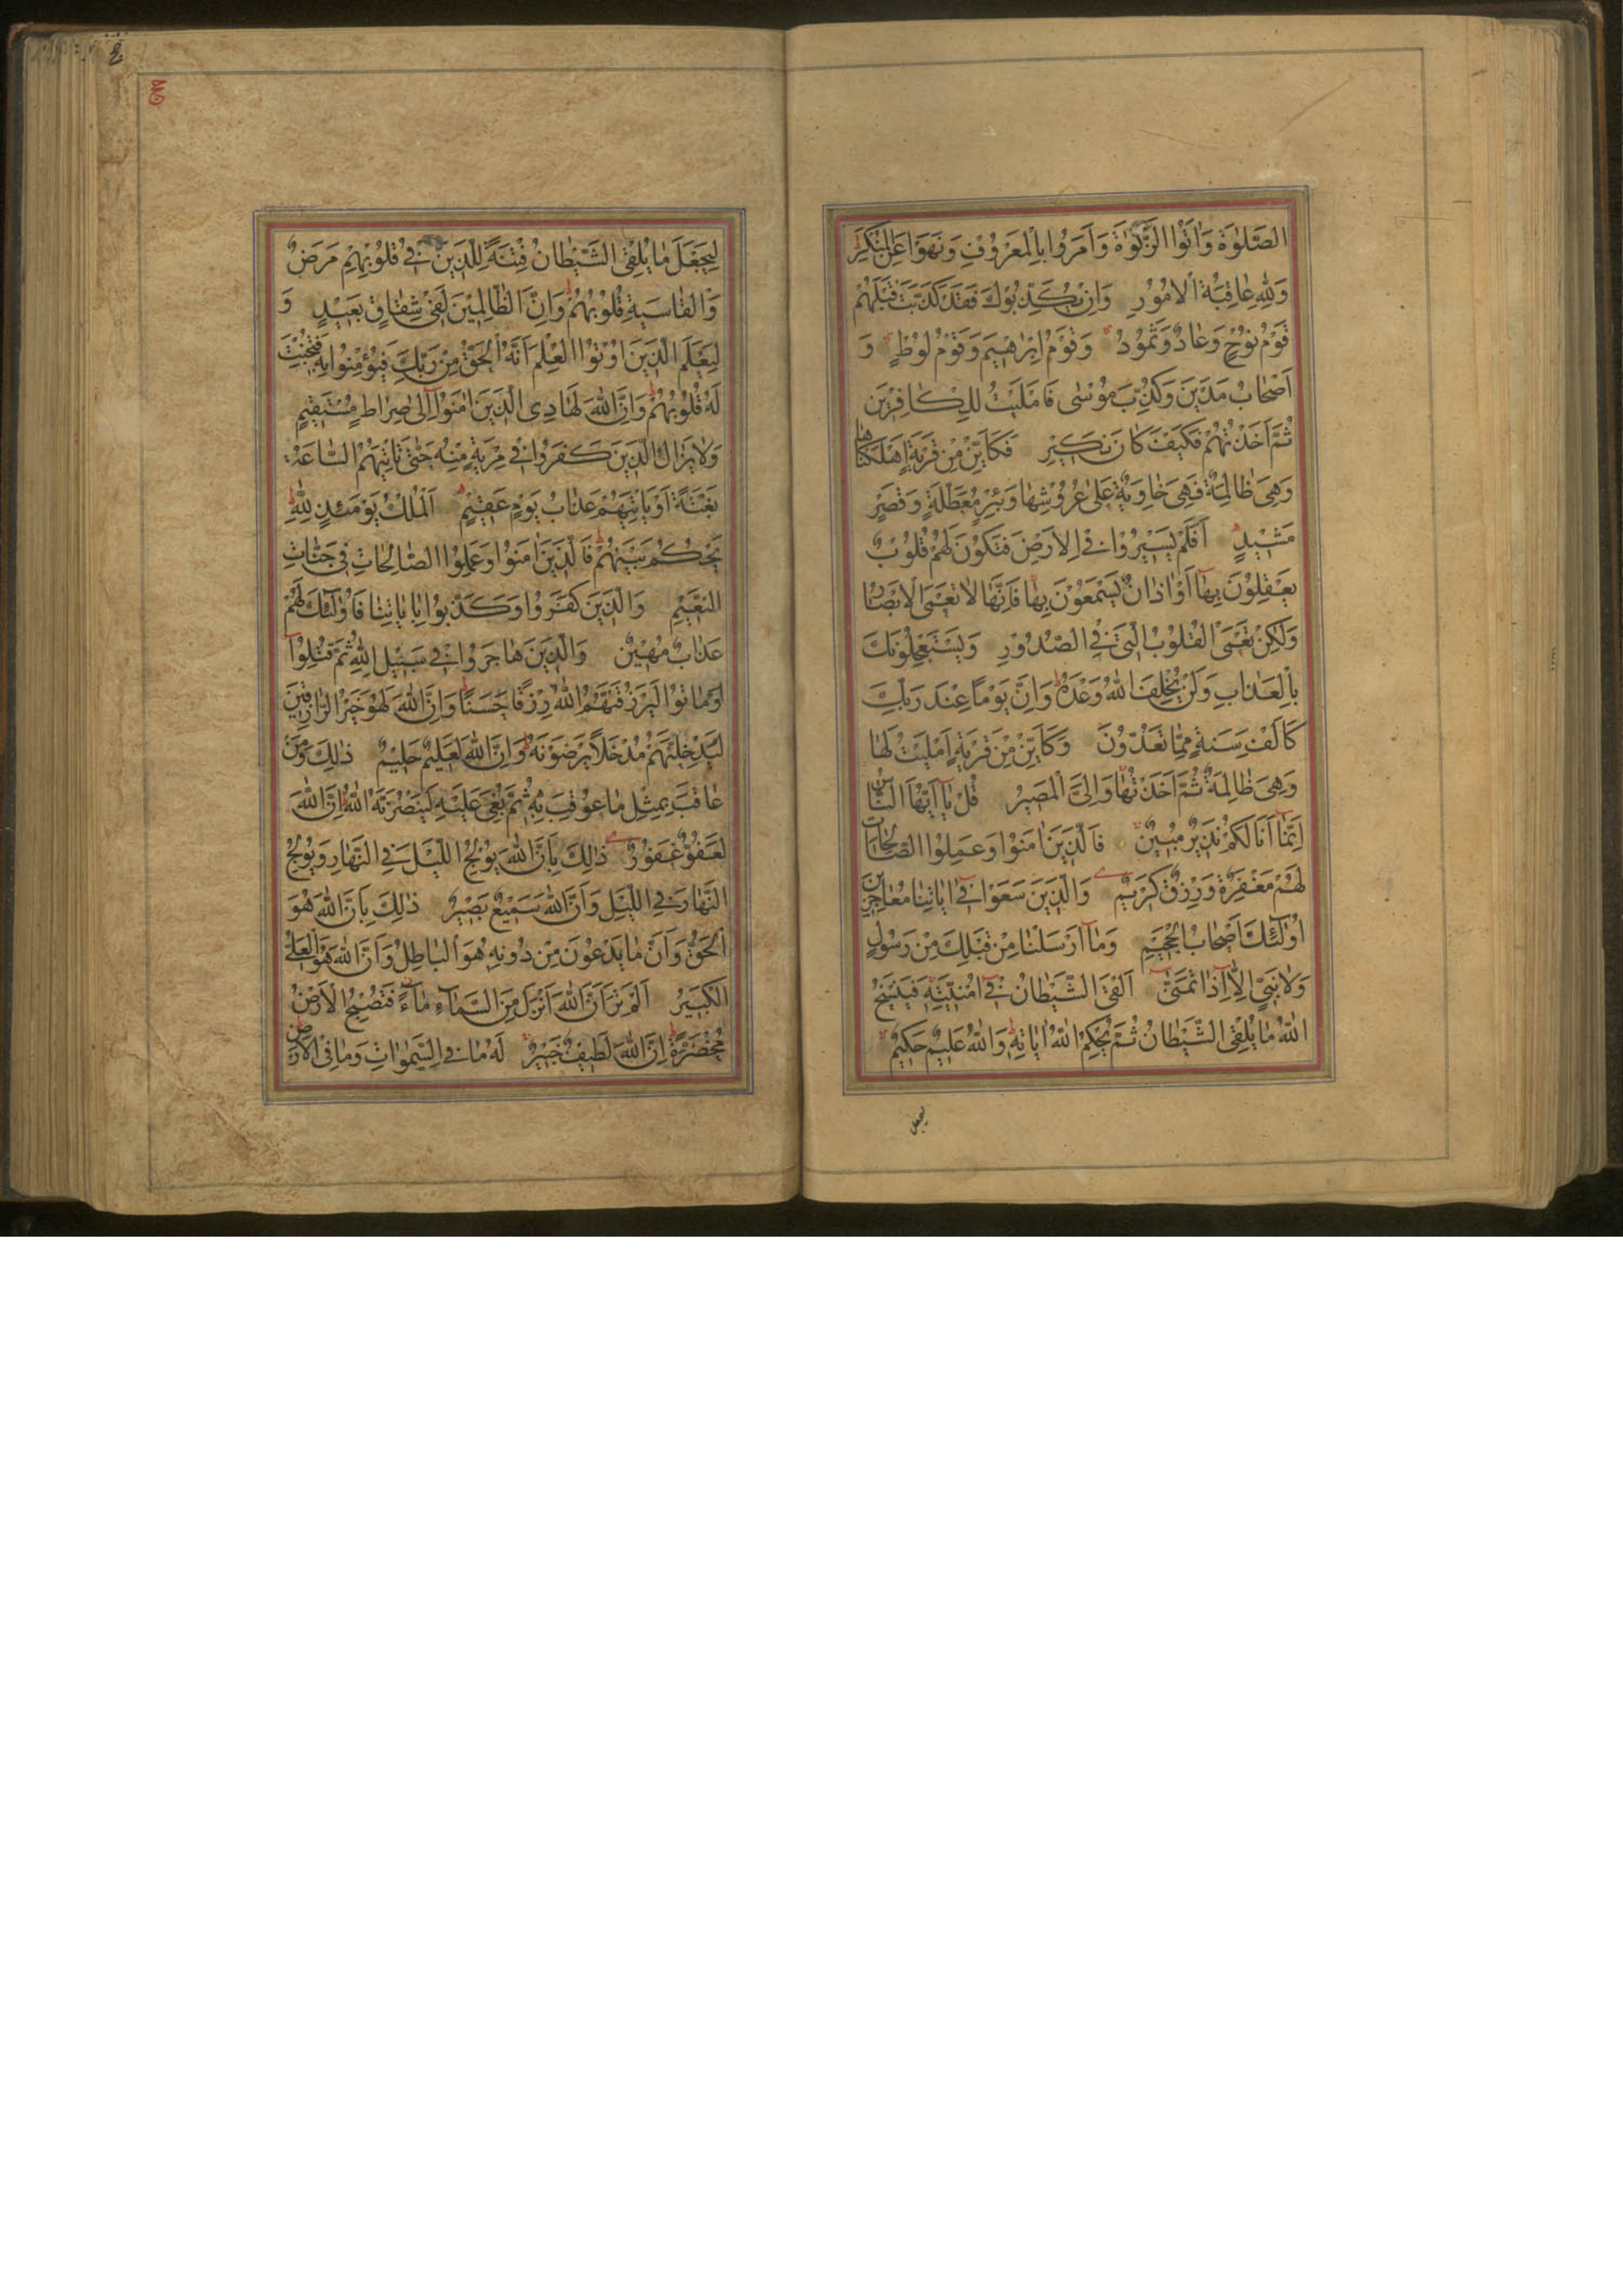 الصَّلٰوةَ وَاٰتَوُا الزَّكٰوةَ وَاَمَرُوا بِالْمَعْرُوْفِ وَنَهَوْا عَنِ الْمُنْكَرِ
وَلِلّٰهِ عَاقِبَةُ الْاُمُوْرِ وَاِنْ يُكَذِّبُوْكَ فَقَدْ كَذَّبَتْ قَبْلَهُمْ
قَوْمُ نُوْحٍ وَعَادٌ وَثَمُوْدُ وَقَوْمُ اِبْرٰهِيْمَ وَقَوْمُ لُوْطٍ وَ
اَصْحَابُ مَدْيَنَ وَكُذِّبَ مُوْسٰى فَاَمْلَيْتُ لِلْكَافِرِيْنَ
ثُمَّ اَخَذْتُهُمْ فَكَيْفَ كَانَ نَكِيْرِ فَكَاَيِّنْ مِنْ قَرْيَةٍ اَهْلَكْنَاهَا
وَهِىَ ظَالِمَةٌ فَهِىَ خَاوِيَةٌ عَلٰى عُرُوْشِهَا وَبِئْرٍ مُعَطَّلَةٍ وَقَصْرٍ
مَشِيْدٍ اَفَلَمْ يَسِيْرُوْا فِى الْاَرْضِ فَتَكُوْنَ لَهُمْ قُلُوْبٌ
يَعْقِلُوْنَ بِهَا اَوْ اٰذَانٌ يَسْمَعُوْنَ بِهَا فَاِنَّهَا لَا تَعْمَى الْاَبْصَارُ
وَلٰكِنْ تَعْمَى الْقُلُوْبُ الَّتِى فِى الصُّدُوْرِ وَيَسْتَعْجِلُوْنَكَ
بِالْعَذَابِ وَلَنْ يُخْلِفَ اللّٰهُ وَعْدَهُ وَاِنَّ يَوْمًا عِنْدَ رَبِّكَ
كَاَلْفِ سَنَةٍ مِمَّا تَعُدُّوْنَ وَكَاَيِّنْ مِنْ قَرْيَةٍ اَمْلَيْتُ لَهَا
وَهِىَ ظَالِمَةٌ ثُمَّ اَخَذْتُهَا وَاِلَىَّ الْمَصِيْرُ قُلْ يَا اَيُّهَا النَّاسُ
اِنَّمَا اَنَا لَكُمْ نَذِيْرٌ مُبِيْنٌ فَالَّذِيْنَ اٰمَنُوْا وَعَمِلُوا الصَّالِحَاتِ
لَهُمْ مَغْفِرَةٌ وَرِزْقٌ كَرِيْمٌ وَالَّذِيْنَ سَعَوْا فِى اٰيَاتِنَا مُعَاجِزِيْنَ
اُولٰئِكَ اَصْحَابُ الْجَحِيْمِ وَمَا اَرْسَلْنَا مِنْ قَبْلِكَ مِنْ رَسُوْلٍ
وَلَا نَبِىٍّ اِلَّا اِذَا تَمَنّٰى اَلْقَى الشَّيْطَانُ فِى اُمْنِيَّتِهِ فَيَنْسَخُ
اللّٰهُ مَا يُلْقِى الشَّيْطَانُ ثُمَّ يُحْكِمُ اللّٰهُ اٰيَاتِهِ وَاللّٰهُ عَلِيْمٌ حَكِيْمٌ
ليجعل
لِيَجْعَلَ مَا يُلْقِى الشَّيْطَانُ فِتْنَةً لِلَّذِيْنَ فِى قُلُوْبِهِمْ مَرَضٌ
وَالْقَاسِيَةِ قُلُوْبُهُمْ وَاِنَّ الظَّالِمِيْنَ لَفِى شِقَاقٍ بَعِيْدٍ وَ
لِيَعْلَمَ الَّذِيْنَ اُوْتُوا الْعِلْمَ اَنَّهُ الْحَقُّ مِنْ رَبِّكَ فَيُؤْمِنُوا بِهِ فَتُخْبِتَ
لَهُ قُلُوْبُهُمْ وَاِنَّ اللّٰهَ لَهَادِى الَّذِيْنَ اٰمَنُوْا اِلٰى صِرَاطٍ مُسْتَقِيْمٍ
وَلَا يَزَالُ الَّذِيْنَ كَفَرُوْا فِى مِرْيَةٍ مِنْهُ حَتّٰى تَاْتِيَهُمُ السَّاعَةُ
بَغْتَةً اَوْ يَاْتِيَهُمْ عَذَابُ يَوْمٍ عَقِيْمٍ اَلْمُلْكُ يَوْمَئِذٍ لِلّٰهِ
يَحْكُمُ بَيْنَهُمْ فَالَّذِيْنَ اٰمَنُوْا وَعَمِلُوا الصَّالِحَاتِ فِى جَنَّاتِ
النَّعِيْمِ وَالَّذِيْنَ كَفَرُوْا وَكَذَّبُوْا بِاٰيَاتِنَا فَاُولٰئِكَ لَهُمْ
عَذَابٌ مُهِيْنٌ وَالَّذِيْنَ هَاجَرُوْا فِى سَبِيْلِ اللّٰهِ ثُمَّ قُتِلُوْا
اَوْ مَاتُوْا لَيَرْزُقَنَّهُمُ اللّٰهُ رِزْقًا حَسَنًا وَاِنَّ اللّٰهَ لَهُوَ خَيْرُ الرَّازِقِيْنَ
لَيُدْخِلَنَّهُمْ مُدْخَلًا يَرْضَوْنَهُ وَاِنَّ اللّٰهَ لَعَلِيْمٌ حَلِيْمٌ ذٰلِكَ وَمَنْ
عَاقَبَ بِمِثْلِ مَا عُوْقِبَ بِهِ ثُمَّ بُغِىَ عَلَيْهِ لَيَنْصُرَنَّهُ اللّٰهُ اِنَّ اللّٰهَ
لَعَفُوٌّ غَفُوْرٌ ذٰلِكَ بِاَنَّ اللّٰهَ يُوْلِجُ اللَّيْلَ فِى النَّهَارِ وَيُوْلِجُ
النَّهَارَ فِى اللَّيْلِ وَاَنَّ اللّٰهَ سَمِيْعٌ بَصِيْرٌ ذٰلِكَ بِاَنَّ اللّٰهَ هُوَ
الْحَقُّ وَاَنَّ مَا يَدْعُوْنَ مِنْ دُوْنِهِ هُوَ الْبَاطِلُ وَاَنَّ اللّٰهَ هُوَ الْعَلِىُّ
الْكَبِيْرُ اَلَمْ تَرَ اَنَّ اللّٰهَ اَنْزَلَ مِنَ السَّمَاءِ مَاءً فَتُصْبِحُ الْاَرْضُ
مُخْضَرَّةً اِنَّ اللّٰهَ لَطِيْفٌ خَبِيْرٌ لَهُ مَا فِى السَّمٰوَاتِ وَمَا فِى الْاَرْضِ